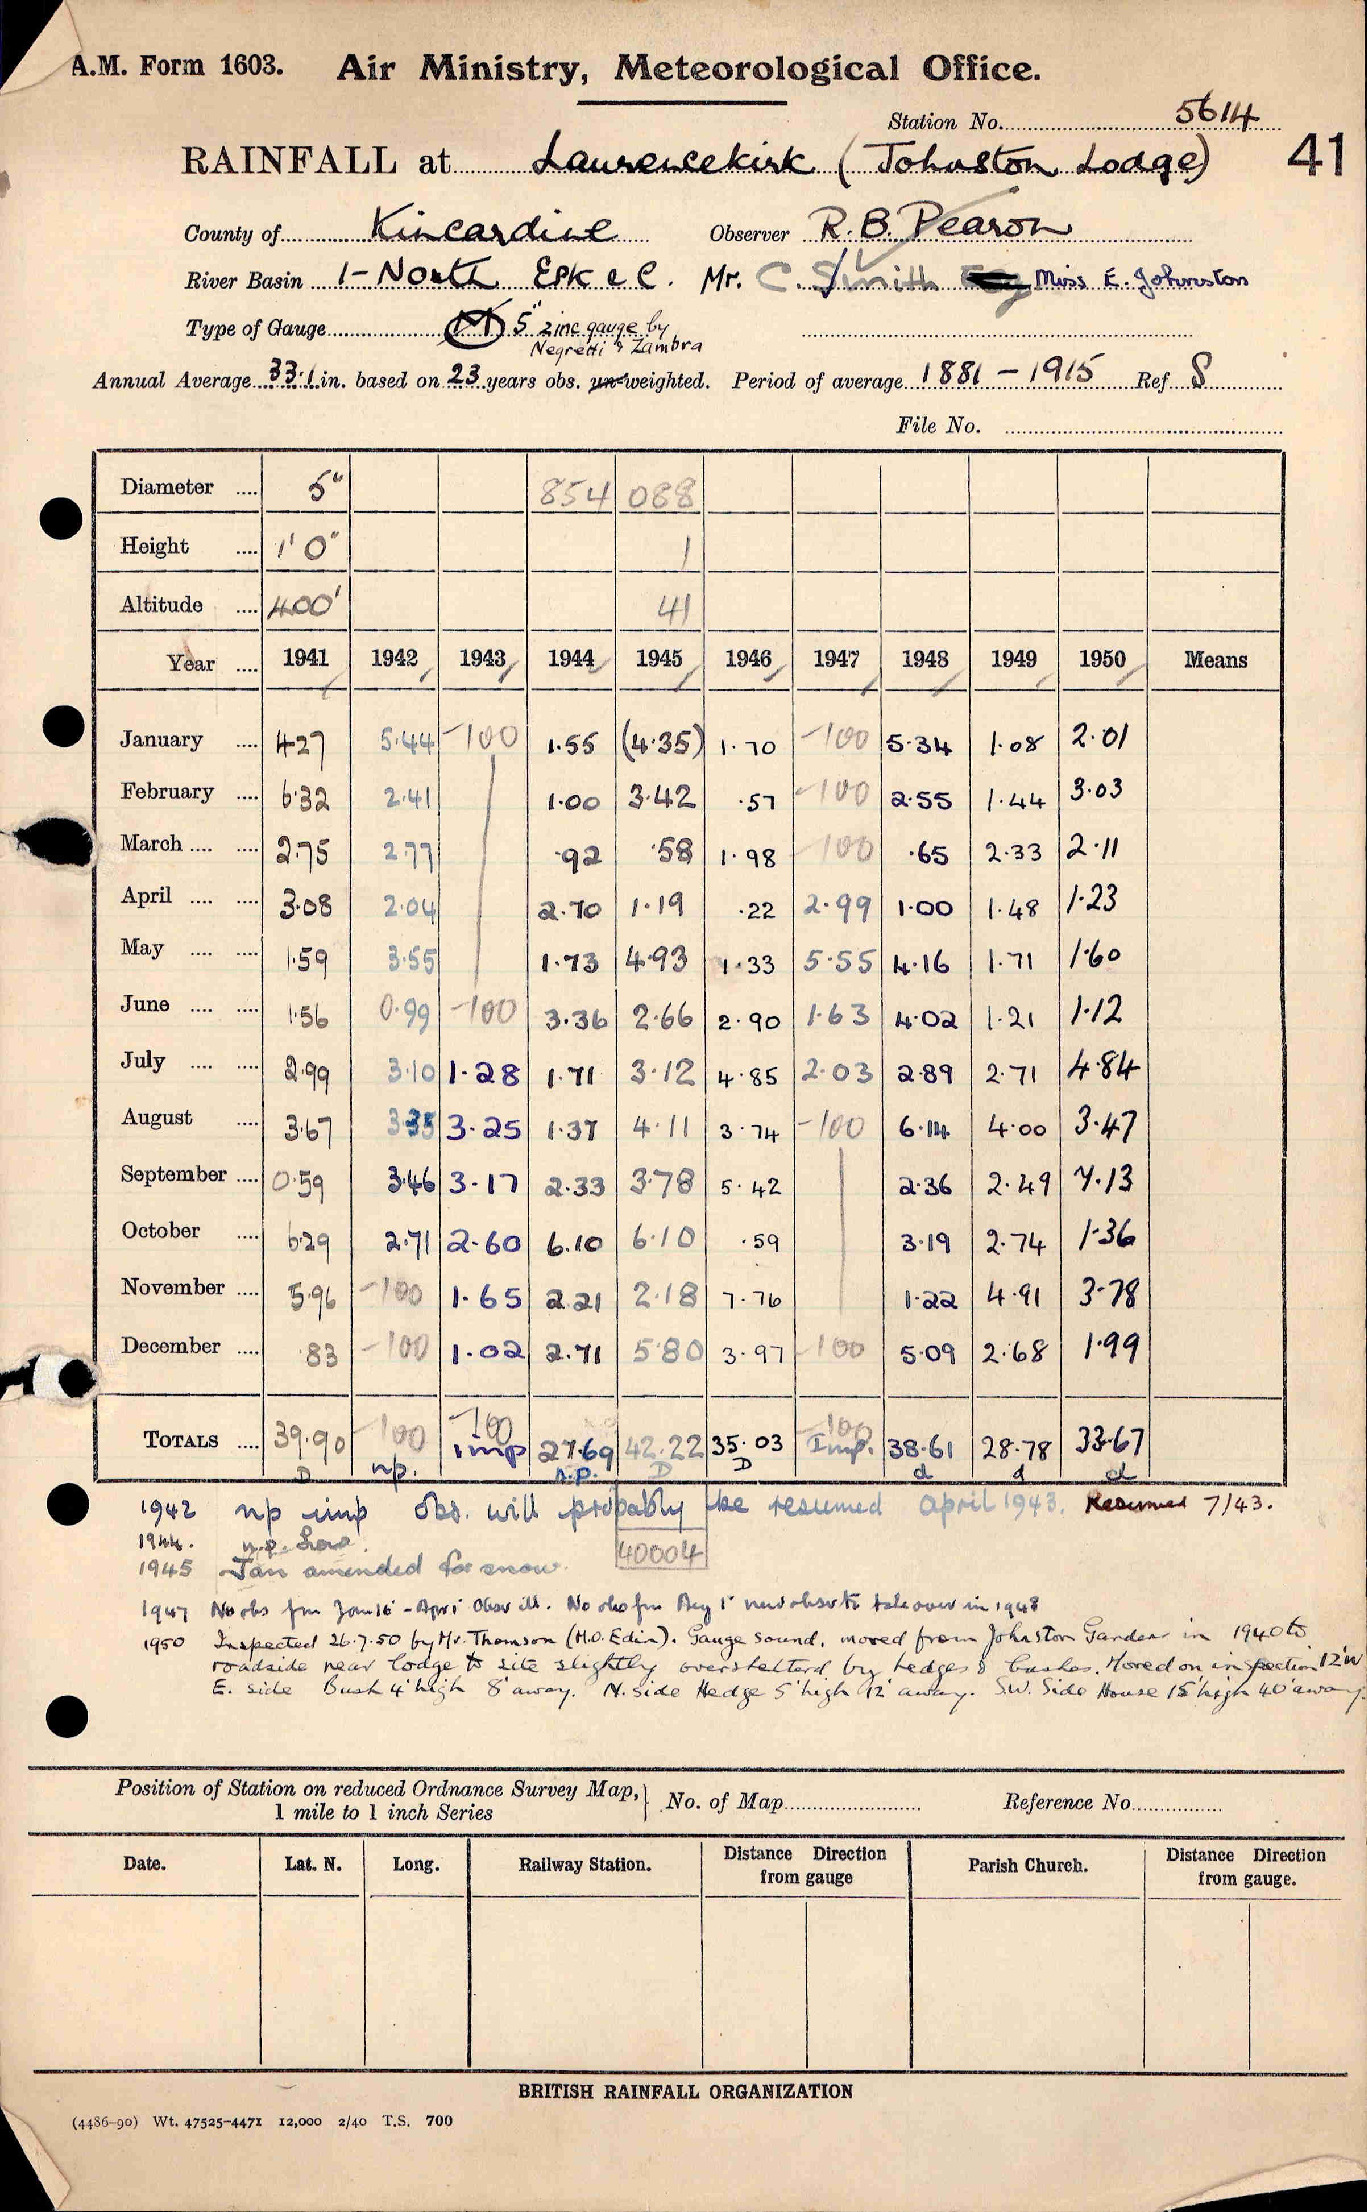 A.M. Form 1603. Air Ministry, Meteorological Office.
Station No. 5614
RAINFALL at Laurencekirk (Johnston Lodge) 41
County of Kincardine Observer R. B. Pearson
River Basin 1 - North Esk &c. Mr. C. Smith Esq Miss E. Johnston
Type of Gauge M 5" zinc gauge by
Negretti & Zambra
Annual Average 33.1 in. based on 23 years obs. un-weighted. Period of average 1881 - 1915 Ref S
File No.
Diameter .... 5" 854 088
Height .... 1' 0" 1
Altitude .... 400' 41
Year .... 1941 1942 1943 1944 1945 1946 1947 1948 1949 1950 Means
January .... 4.27 5.44 -100 1.55 (4.35) 1.70 -100 5.34 1.08 2.01
February .... 6.32 2.41 1.00 3.42 .57 -100 2.55 1.44 3.03
March .... .... 2.75 2.77 .92 .58 1.98 -100 .65 2.33 2.11
April .... .... 3.08 2.04 2.70 1.19 .22 2.99 1.00 1.48 1.23
May .... .... 1.59 3.55 1.73 4.93 1.33 5.55 4.16 1.71 1.60
June .... .... 1.56 0.99 -100 3.36 2.66 2.90 1.63 4.02 1.21 1.12
July .... .... 2.99 3.10 1.28 1.71 3.12 4.85 2.03 2.89 2.71 4.84
August .... 3.67 3.35 3.25 1.37 4.11 3.74 -100 6.14 4.00 3.47
September .... 0.59 3.46 3.17 2.33 3.78 5.42 2.36 2.49 7.13
October .... 6.29 2.71 2.60 6.10 6.10 .59 3.19 2.74 1.36
November .... 5.96 -100 1.65 2.21 2.18 7.76 1.22 4.91 3.78
December .... .83 -100 1.02 2.71 5.80 3.97 -100 5.09 2.68 1.99
TOTALS .... 39.90 -100 -100 27.69 42.22 35.03 -100 38.61 28.78 33.67
D np. imp n.p. D D Imp. d d d
1942 np imp obs. will probably be resumed April 1943. Resumed 7/43.
1944. n.p. Low.
40004
1945 Jan amended for snow.
1947 No obs fm Jan 16 - Apr 1 Obsr ill. No obs fm Aug 1 new obsr to take over in 1948
1950 Inspected 26.7.50 by Mr. Thomson (M.O. Edin). Gauge sound, moved from Johnston Gardens in 1940 to
roadside near lodge to site slightly oversheltered by hedges & bushes. Moved on inspection 12' W
E. side Bush 4' high 8' away. N. side Hedge 5' high 12' away. S.W. Side House 15' high 40' away.
Position of Station on reduced Ordnance Survey Map,
1 mile to 1 inch Series } No. of Map Reference No
Date. Lat. N. Long. Railway Station. Distance Direction from gauge Parish Church. Distance Direction from gauge.
BRITISH RAINFALL ORGANIZATION
(4486-90) Wt. 47525-4471 12,000 2/40 T.S. 700